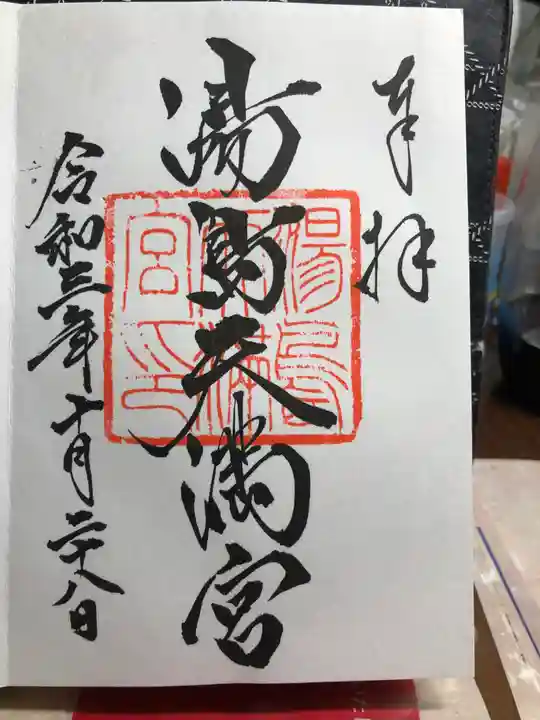 奉拝
湯島天満宮
湯島天満宮印
令和三年十月二十八日